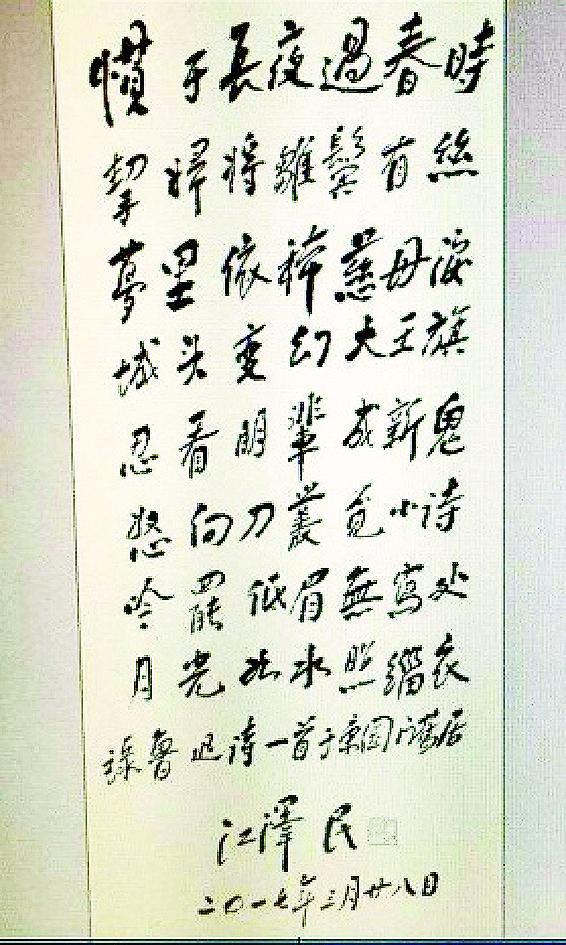 慣于長夜過春時
挈婦將雛鬢有絲
夢里依稀慈母淚
城头变幻大王旗
忍看朋輩成新鬼
怒向刀叢覓小诗
吟罷低眉無寫处
月光如水照緇衣
録魯迅诗一首于
江澤民
二〇一七年三月廿八日